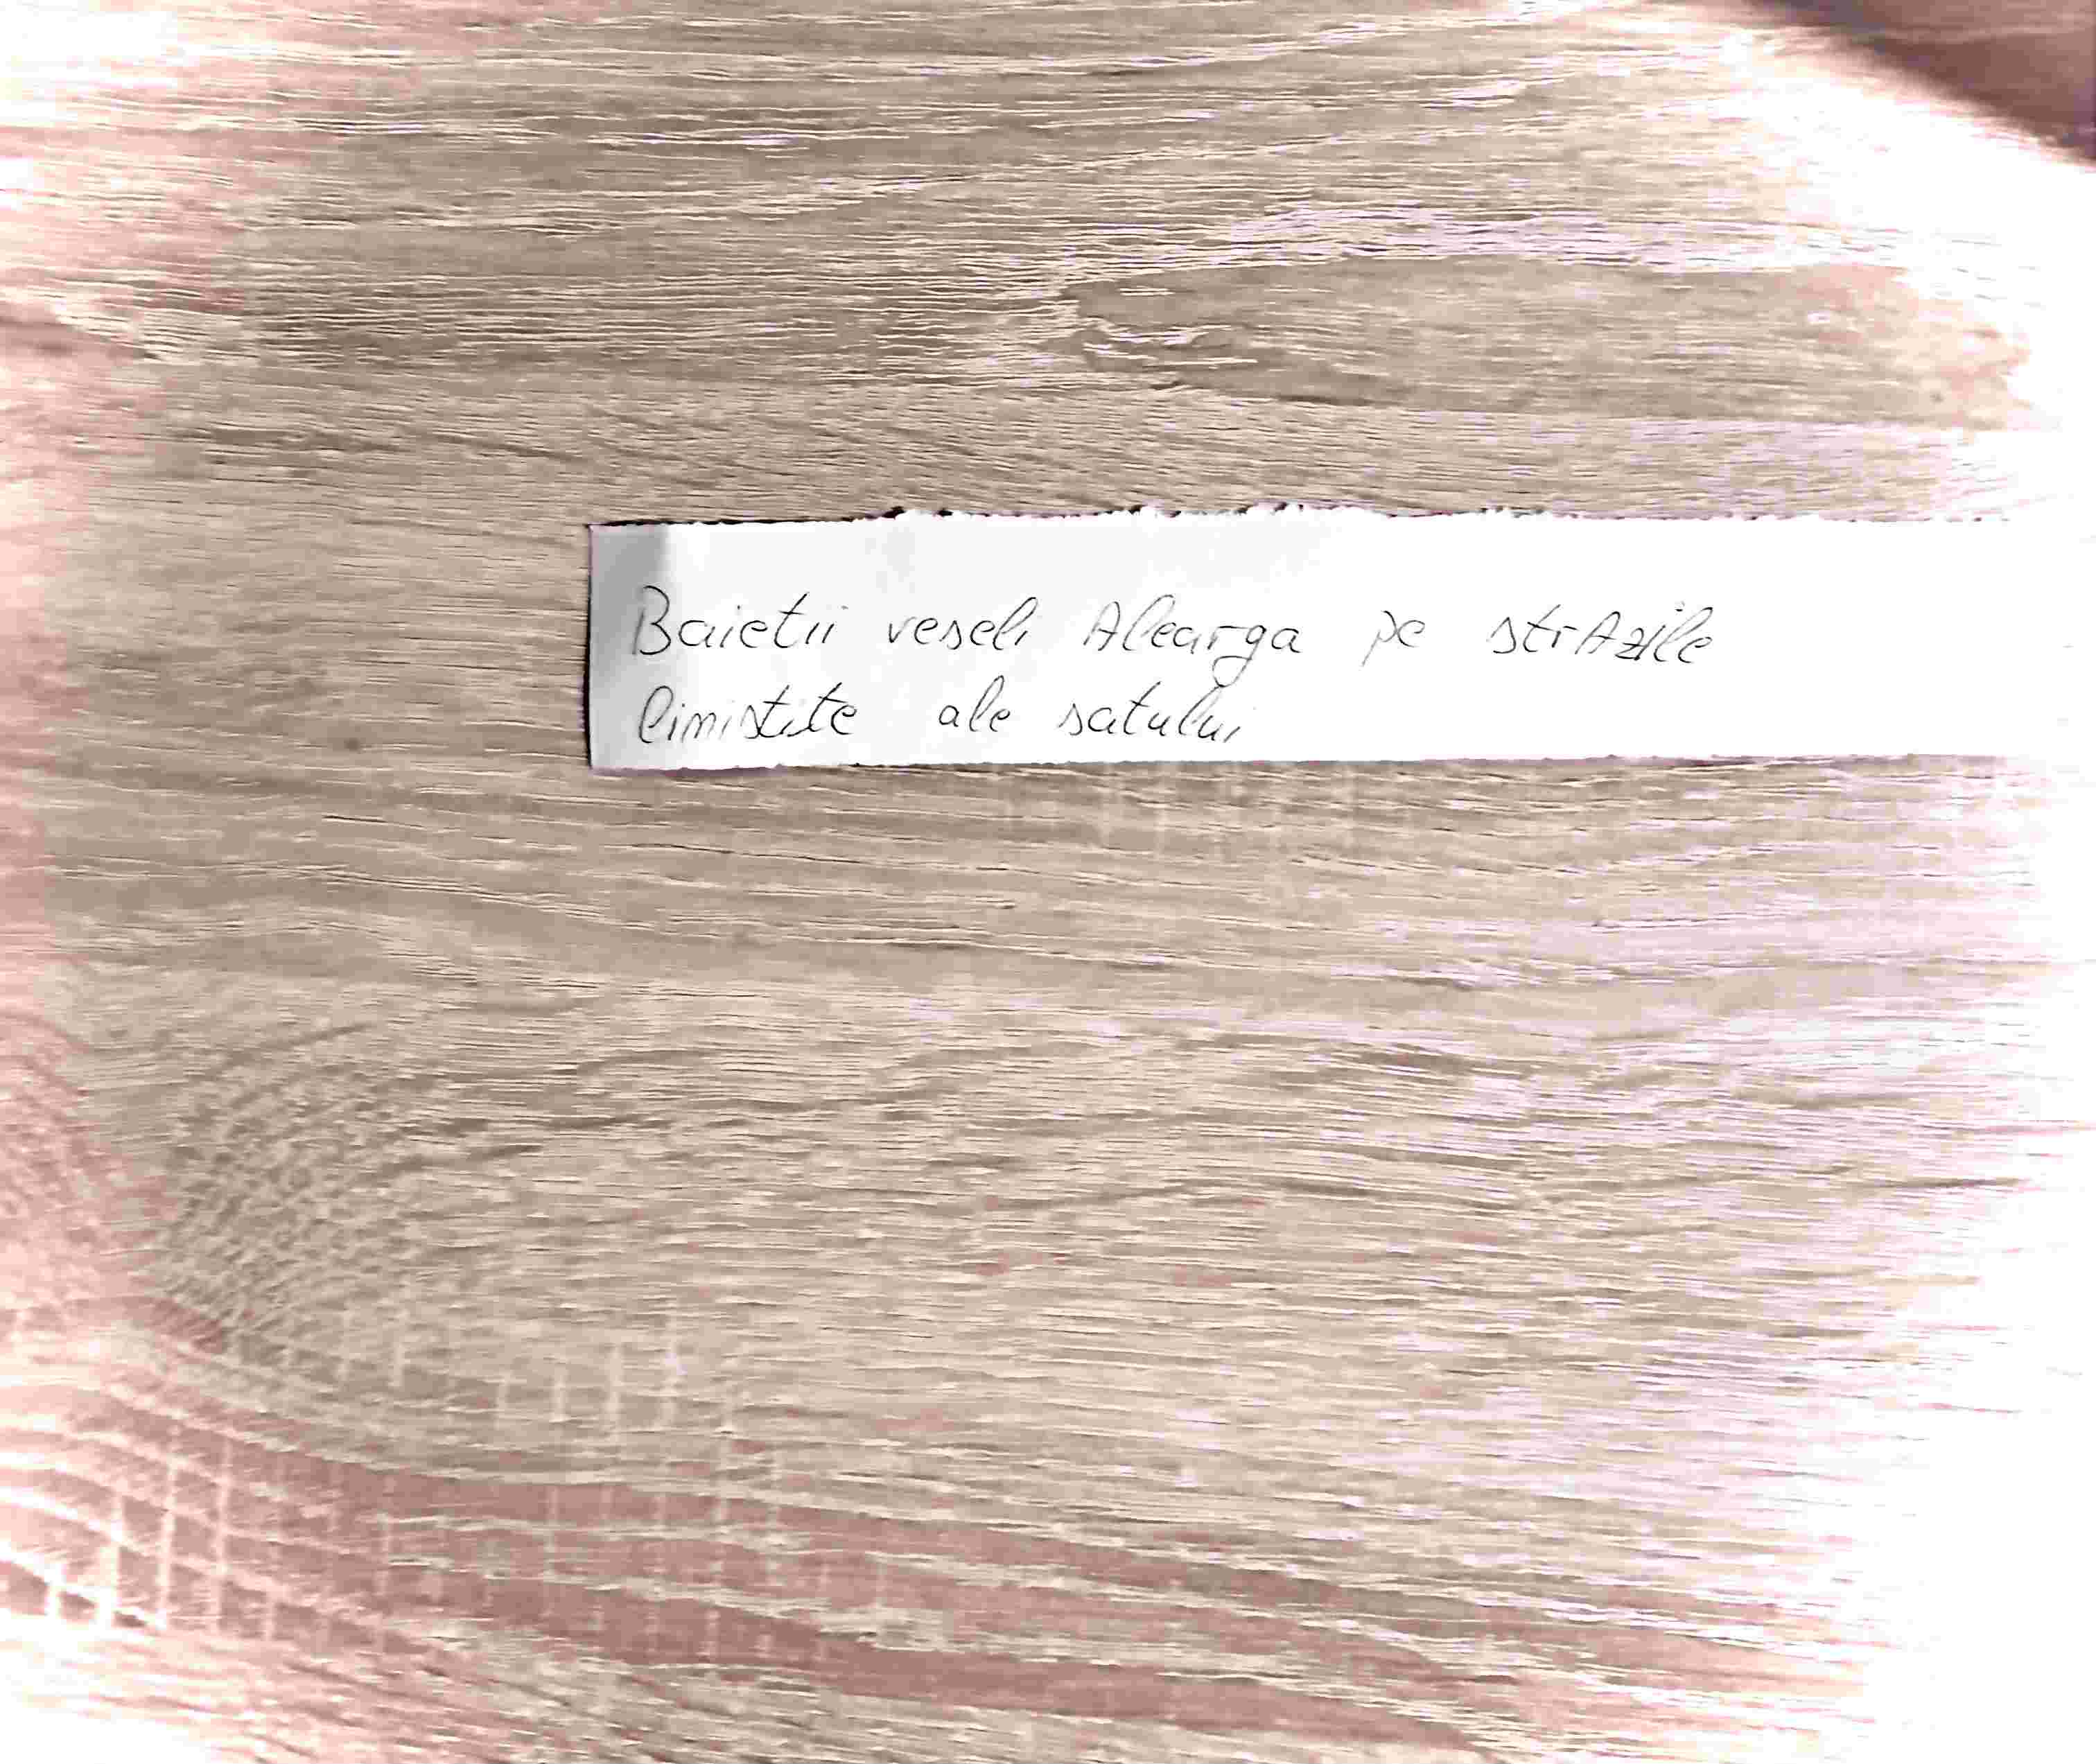 Baietii veseli Alearga pe strAzile
linistite ale satului